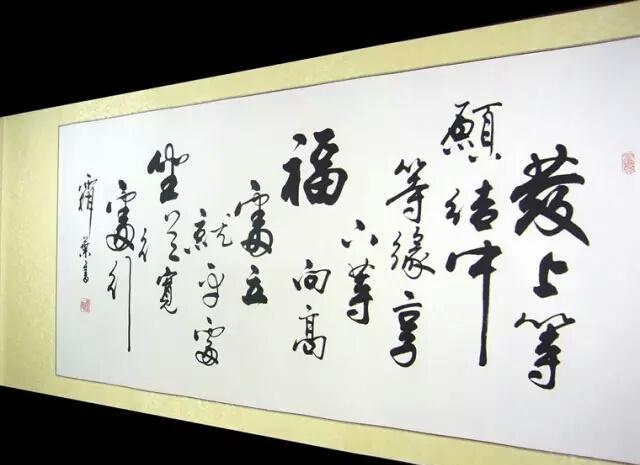 發上等
願結中
等緣享
下等
福向高
處立
就平處
坐從寬
處行
霜葉書